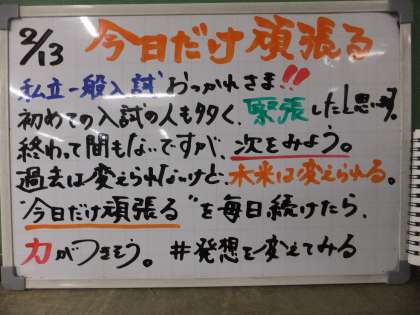 2/13 今日だけ頑張る
私立一般入試おつかれさま!!
初めての入試の人も多く、緊張したと思います。
終わって間もないですが、次をみよう。
過去は変えられないけど、未来は変えられる。
"今日だけ頑張る"を毎日続けたら、
力がつきそう。#発想を変えてみる